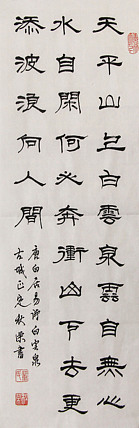 天平山上白雲泉雲自無心
水自閑何必奔衝山下去更
添波浪向人間
唐白居易詩白雲泉
古城正書